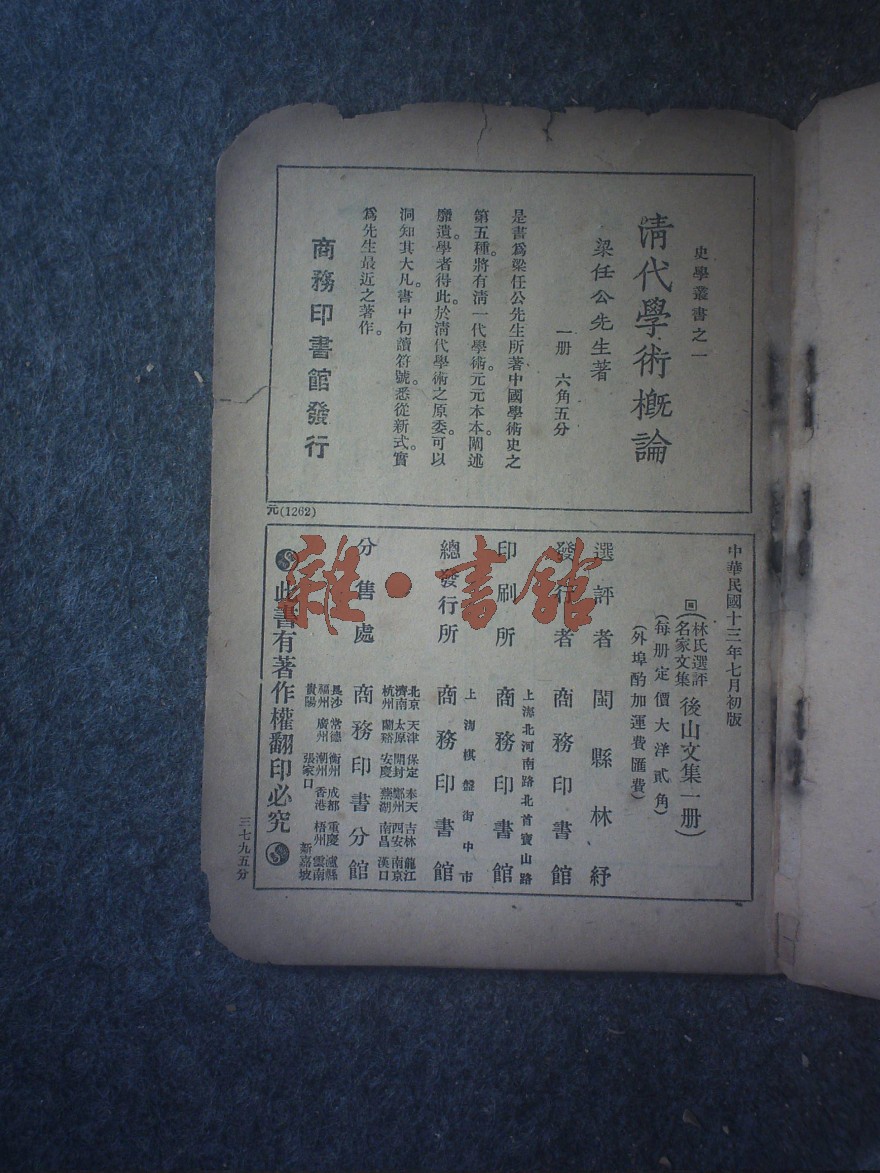 史學叢書之一
清代學術概論
梁任公先生著
一册 六角五分
是書爲梁任公先生所著中國學術史之
第五種。將有清一代學術。元元本本。闡述
靡遺。學者得此。於清代學術之原委。可以
洞知其大凡。書中句讀符號。悉從新式。實
爲先生最近之著作。
商務印書館發行
元(1262)
中華民國十三年七月初版
(林氏選評名家文集 後山文集一册)
(每册定價大洋貳角)
(外埠酌加運費匯費)
選評者 閩縣林紓
發行者 商務印書館
上海北河南路北首寶山路
印刷所 商務印書館
上海棋盤街中市
總發行所 商務印書館
北京 天津 保定 奉天 吉林 龍江
濟南 太原 開封 鄭州 西安 南京
杭州 蘭谿 安慶 蕪湖 南昌 漢口
分售處 商務印書分館
長沙 常德 衡州 成都 重慶 瀘縣
福州 廣州 潮州 香港 梧州 雲南
貴陽 張家口 新嘉坡
此書有著作權翻印必究
三七九五分
雜·書館